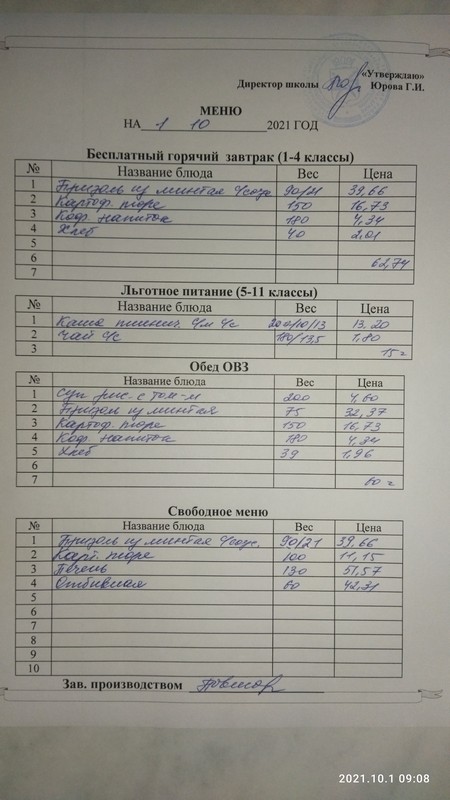 «Утверждаю»
Директор школы Юрова Г.И.
МЕНЮ
НА 1 10 2021 ГОД
Бесплатный горячий завтрак (1-4 классы)
№ Название блюда Вес Цена
1 Бризоль из минтая с/соус 90/21 39,66
2 Картоф. пюре 150 16,73
3 Коф. напиток 180 4,34
4 Хлеб 40 2,01
5
6 62,74
7
Льготное питание (5-11 классы)
№ Название блюда Вес Цена
1 Каша пшенич. с/м с/с 200/10/13 13.20
2 Чай с/с 180/13,5 1,80
3 15 =
Обед ОВЗ
№ Название блюда Вес Цена
1 Суп рис. с том-м 200 4,60
2 Бризоль из минтая 75 32,37
3 Картоф. пюре 150 16,73
4 Коф. напиток 180 4,34
5 Хлеб 39 1,96
6
7 60 =
Свободное меню
№ Название блюда Вес Цена
1 Бризоль из минтая с/соус. 90/21 39,66
2 Карт. пюре 100 11,15
3 Печень 130 51,57
4 Отбивная 60 42,31
5
6
7
8
9
10
Зав. производством
2021.10.1 09:08